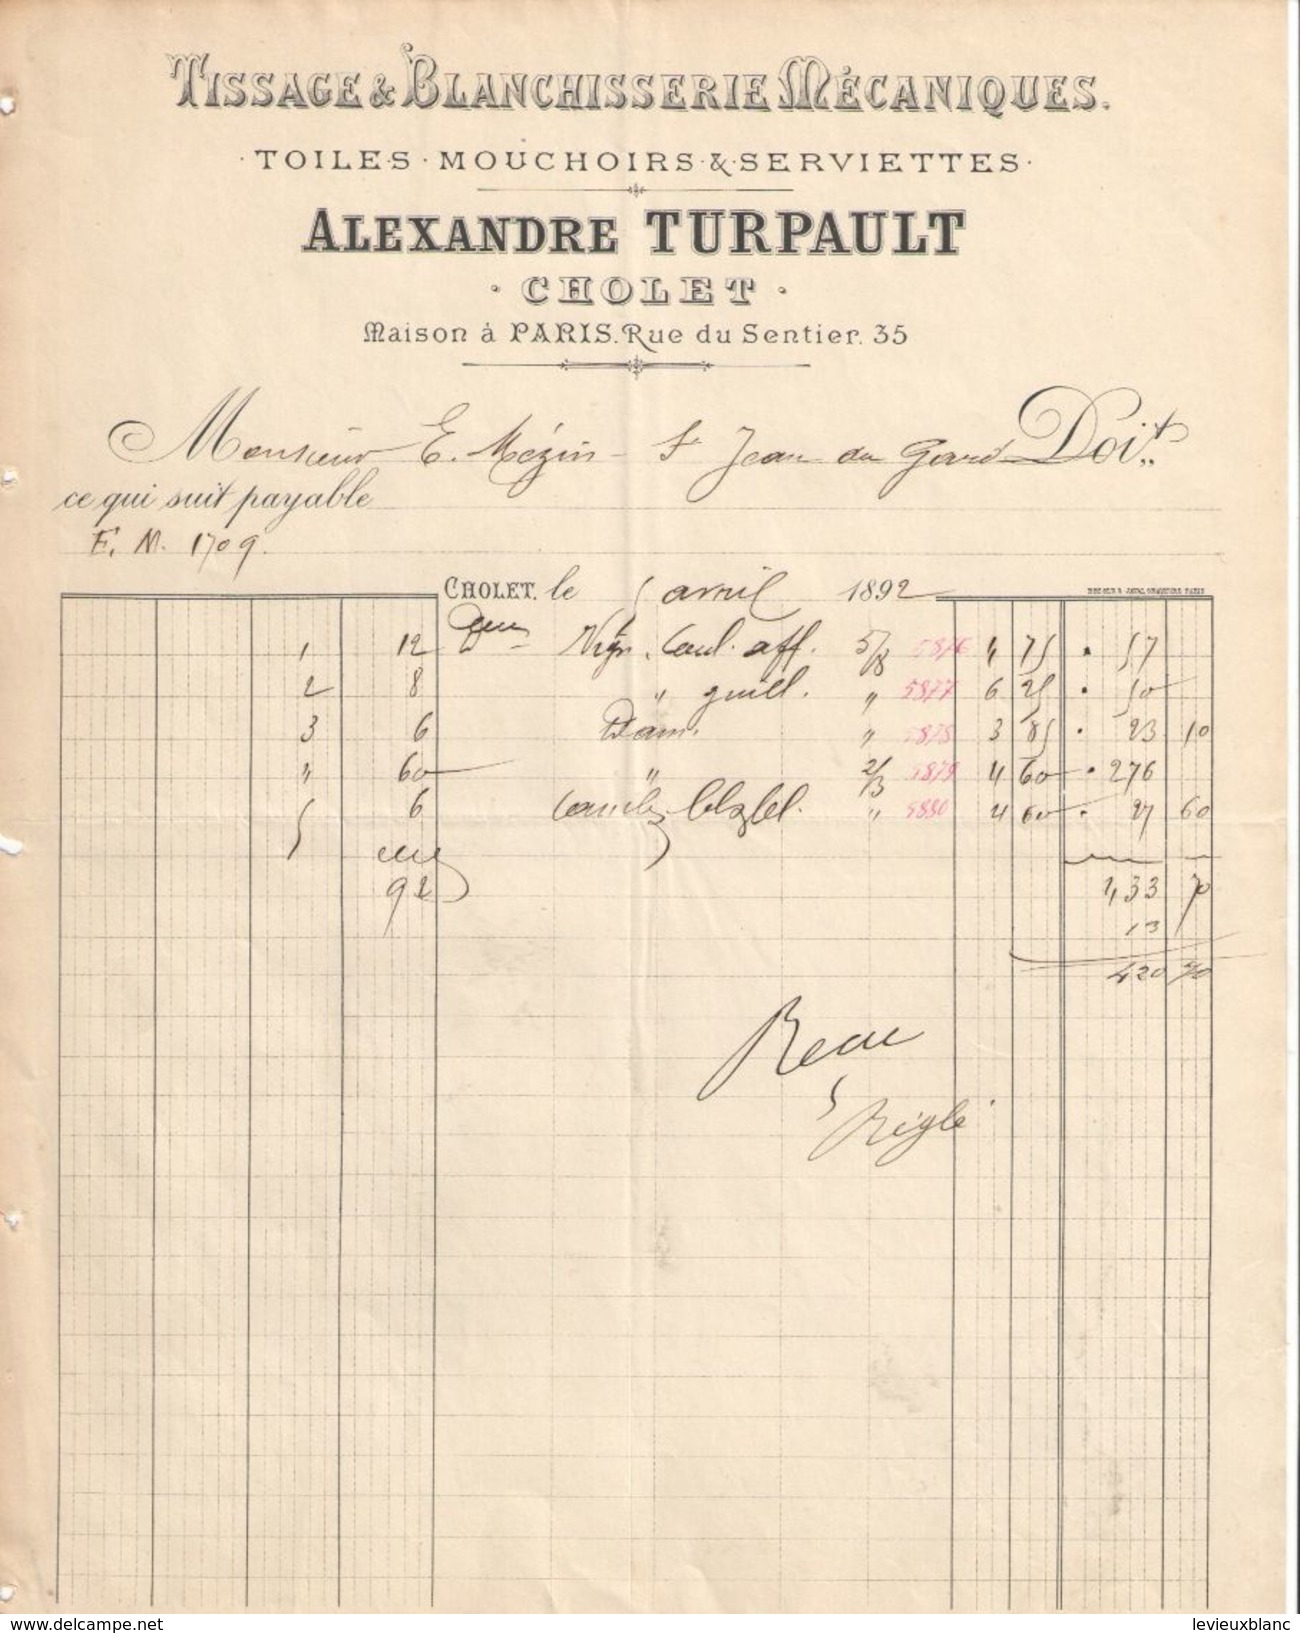 TISSAGE & BLANCHISSERIE MÉCANIQUES.
· TOILES · MOUCHOIRS · & · SERVIETTES ·
ALEXANDRE TURPAULT
· CHOLET ·
Maison à PARIS. Rue du Sentier. 35
Monsieur E. Mézin - St Jean du Gard Doit
ce qui suit payable
E. M. 1709.
CHOLET, le 5 avril 1892
1 12 5/8 5876 4 75 · 57
2 8 " guill. " 5877 6 25 · 50
3 6 Dam. " 5878 3 85 · 23 10
" 60 " 2/3 5879 4 60 · 276
5 6 " 5880 4 60 · 27 60
92 433 70
13
420 70
Réglé
delcampe.net
levieuxblanc